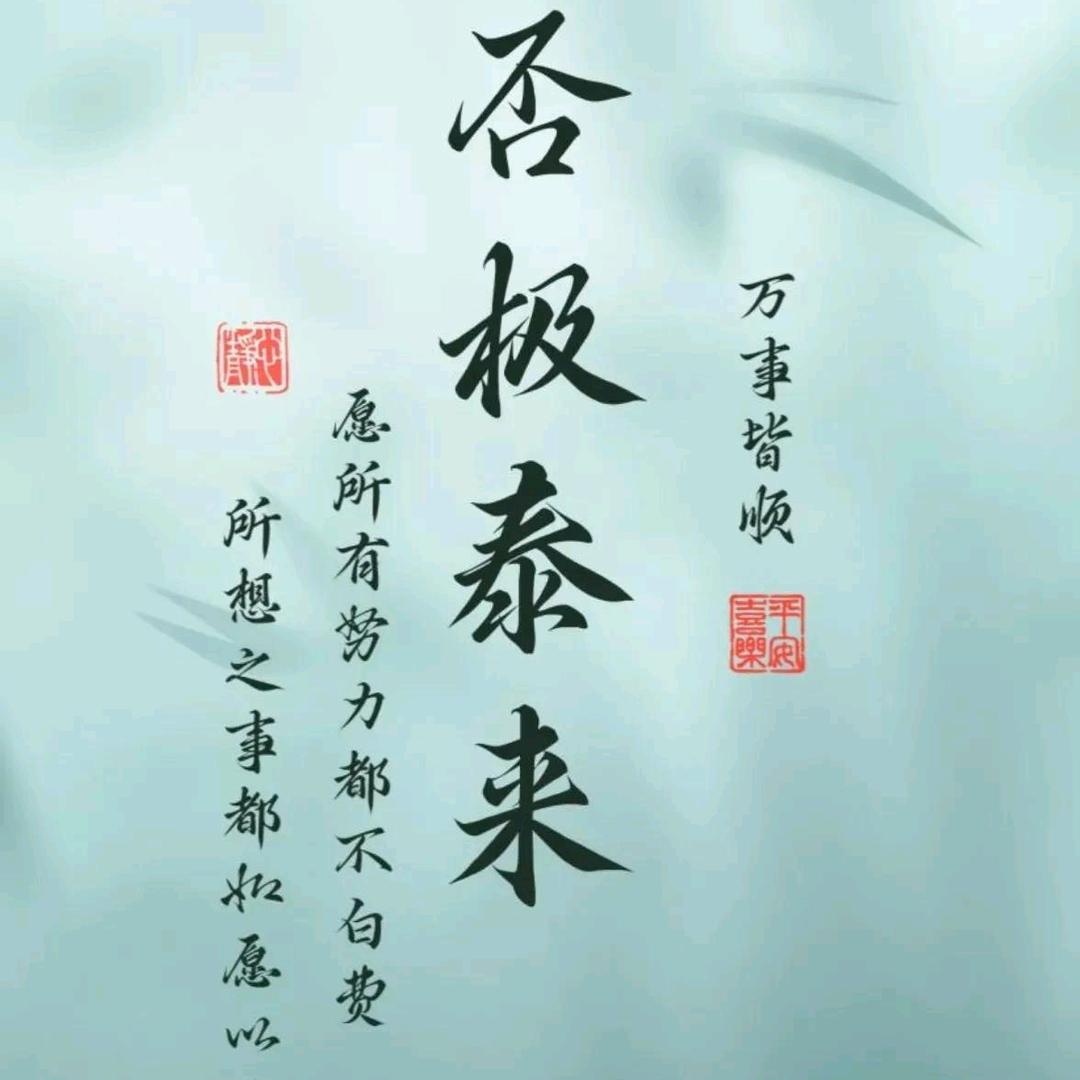 万事皆顺
平安喜樂
否极泰来
愿所有努力都不白费
所想之事都如愿以